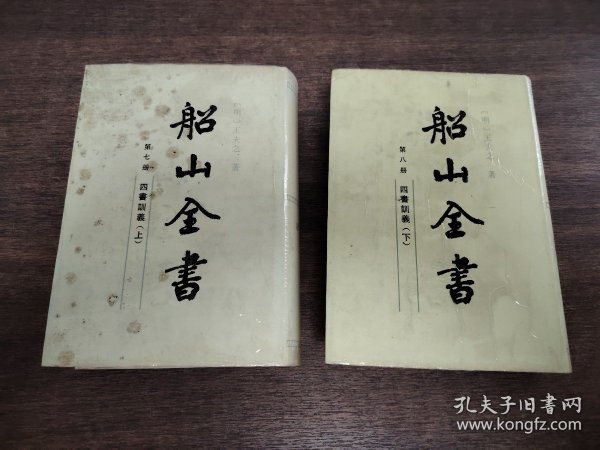 船山全書
第七册 四書訓義(上)
[明]王夫之 著
船山全書
第八册 四書訓義(下)
[明]王夫之 著
孔夫子旧書网
www.kongfz.com